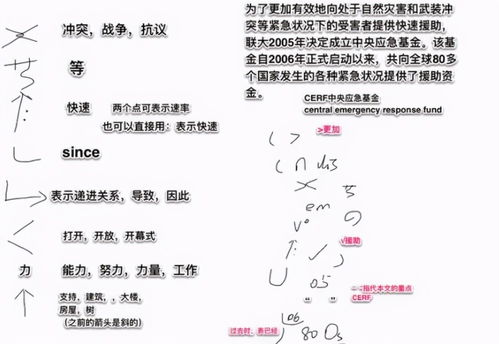 冲突，战争，抗议
等
快速 两个点可表示速率
也可以直接用：表示快速
since
表示递进关系，导致，因此
打开，开放，开幕式
力 能力，努力，力量，工作
支持，建筑，，大楼，
房屋，树
（之前的箭头是斜的）
为了更加有效地向处于自然灾害和武装冲
突等紧急状况下的受害者提供快速援助，
联大2005年决定成立中央应急基金。该基
金自2006年正式启动以来，共向全球80多
个国家发生的各种紧急状况提供了援助资
金。
CERF中央应急基金
central emergency response fund
>更加
( >
( n dis
em
√援助
05
“ ”指代本文的重点
CERF
过去时，表已经
06
80